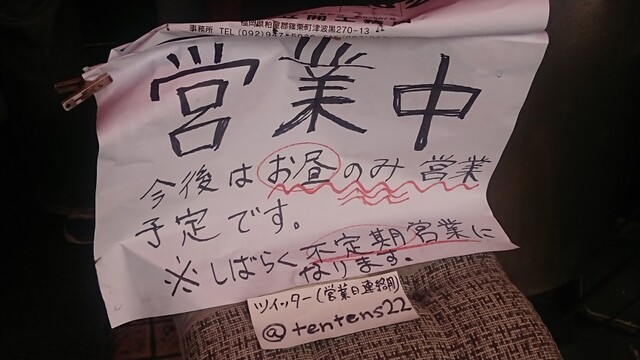 福岡県粕屋郡篠栗町津波黒270-13
事務所 TEL (092)947
営業中
今後はお昼のみ営業
予定です。
※しばらく不定期営業に
なります。
ツイッター(営業日連絡用)
@tentens22